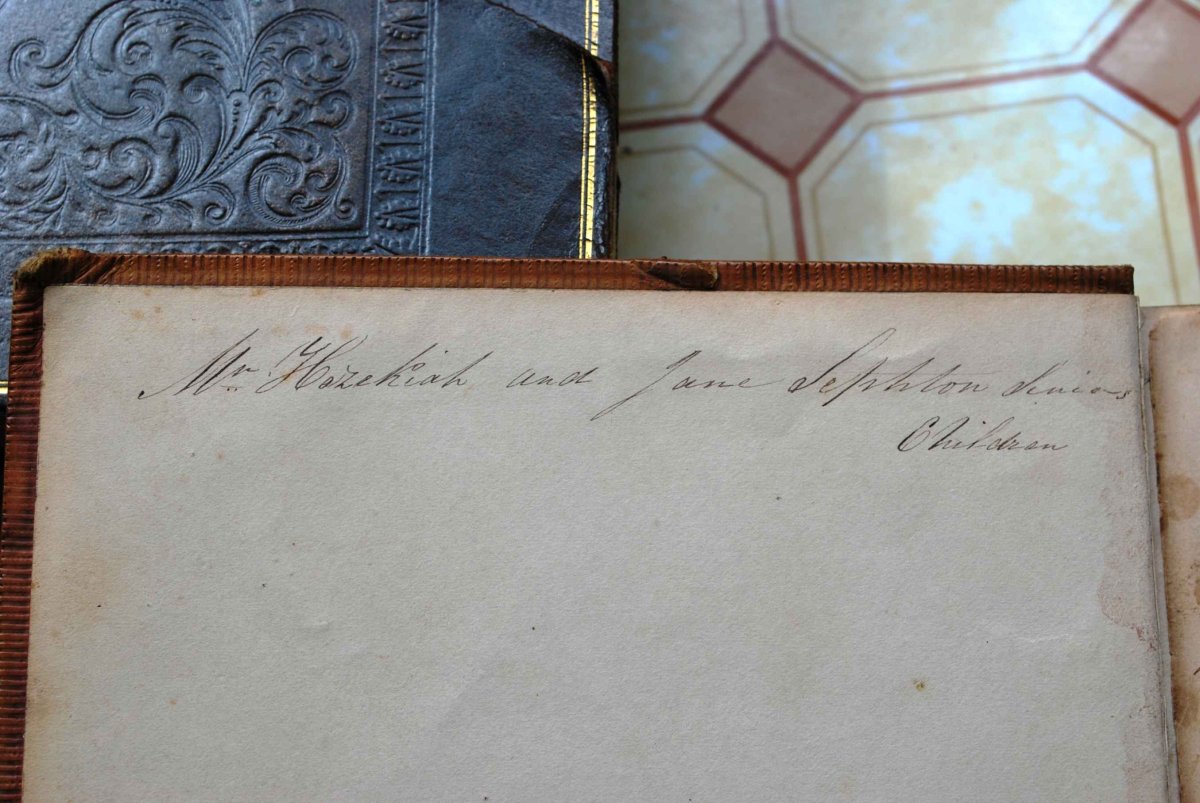 Mr Hezekiah and Jane Sephton Seniors
Children